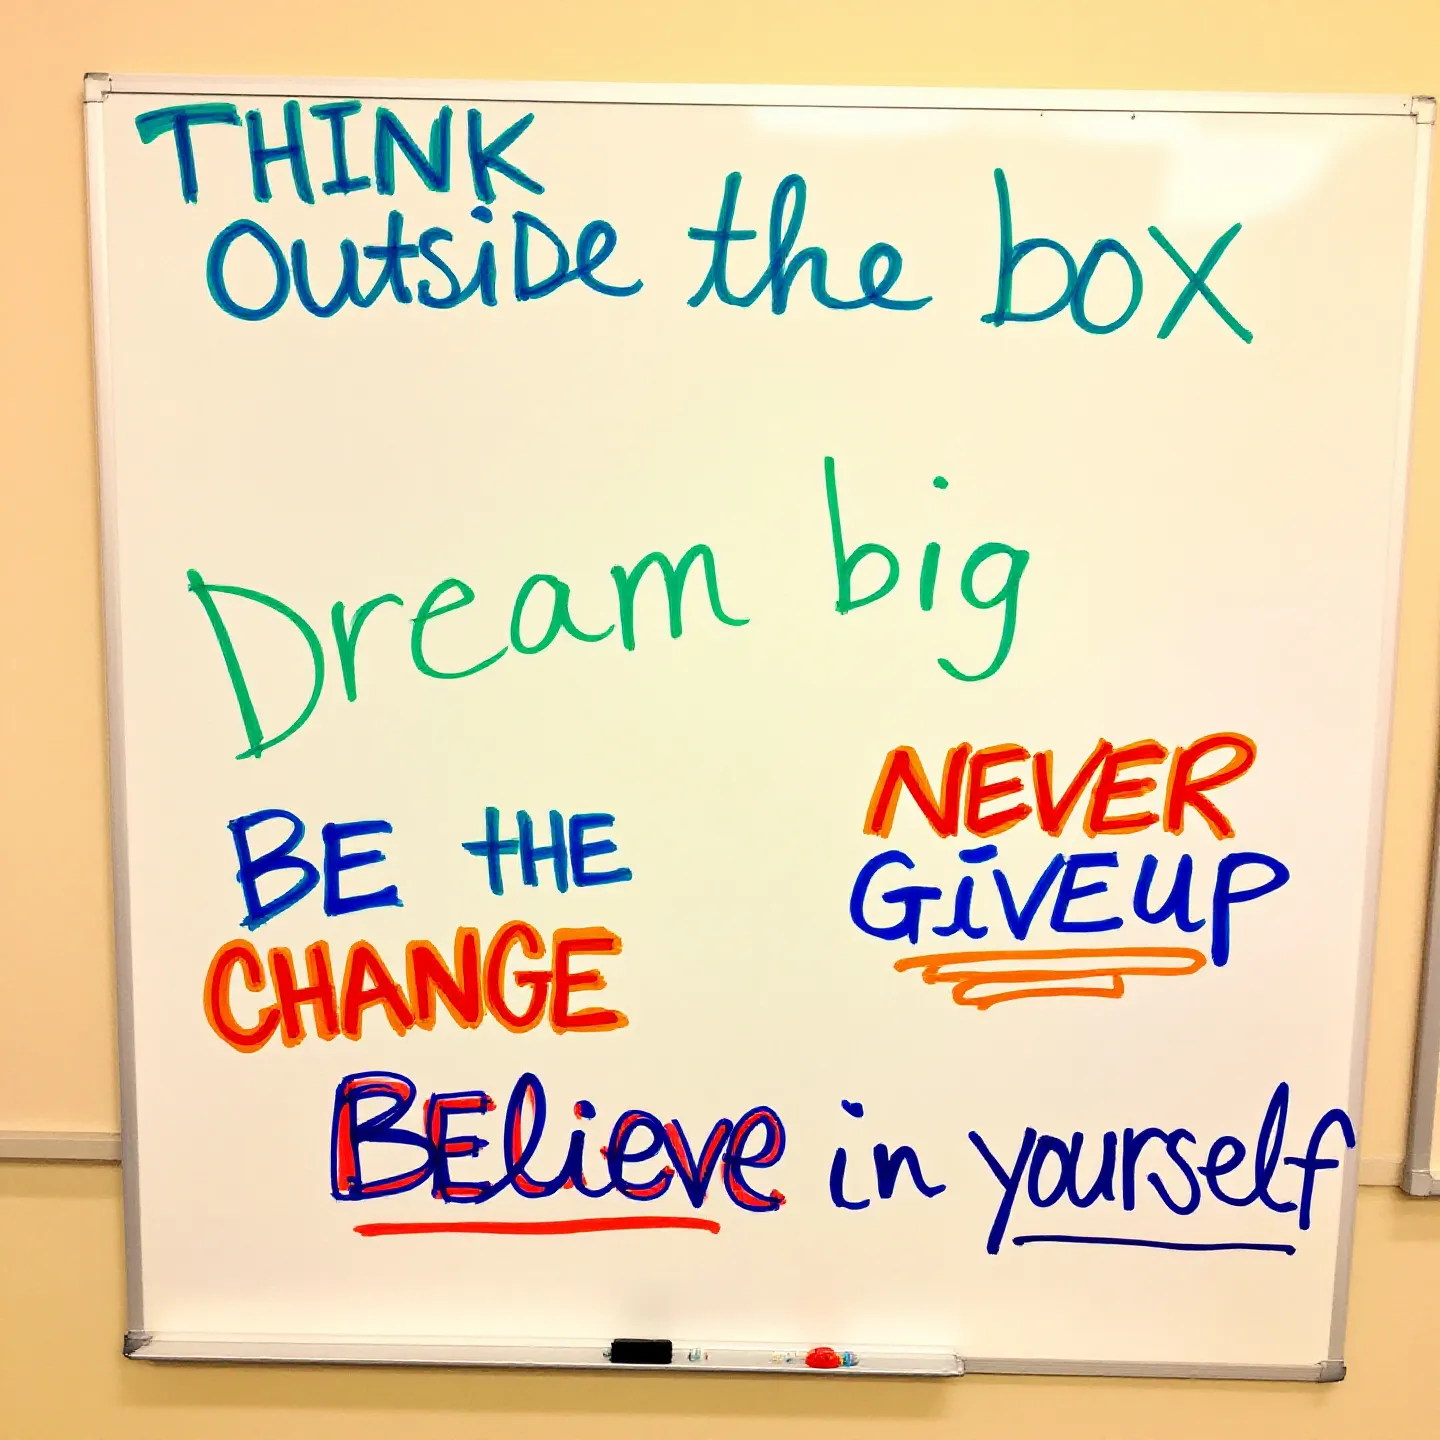 THINK
OUtSiDe the box
Dream big
BE tHE
CHANGE
NEVER
GiVEUP
BElieve in yourself